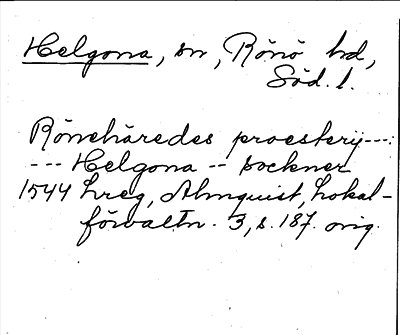 Helgona, sn, Rönö hd,
Söd. l.
Rönehäredes proesterij---:
--- Helgona -- sockner
1544 hreg, Almquist, Lokal-
förvaltn. 3, s. 187. orig.